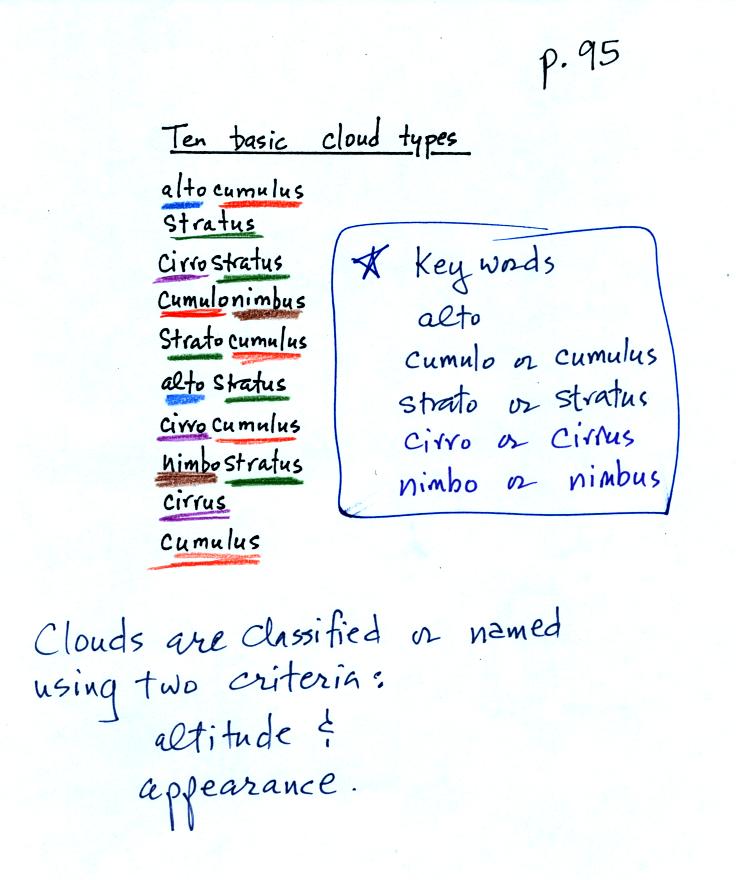 p. 95
Ten basic cloud types
alto cumulus
Stratus
Cirro stratus
Cumulonimbus
Strato cumulus
alto Stratus
cirro cumulus
nimbo stratus
cirrus
Cumulus
Key words
alto
cumulo or cumulus
strato or stratus
cirro or cirrus
nimbo or nimbus
Clouds are classified or named
using two criteria:
altitude &
appearance.